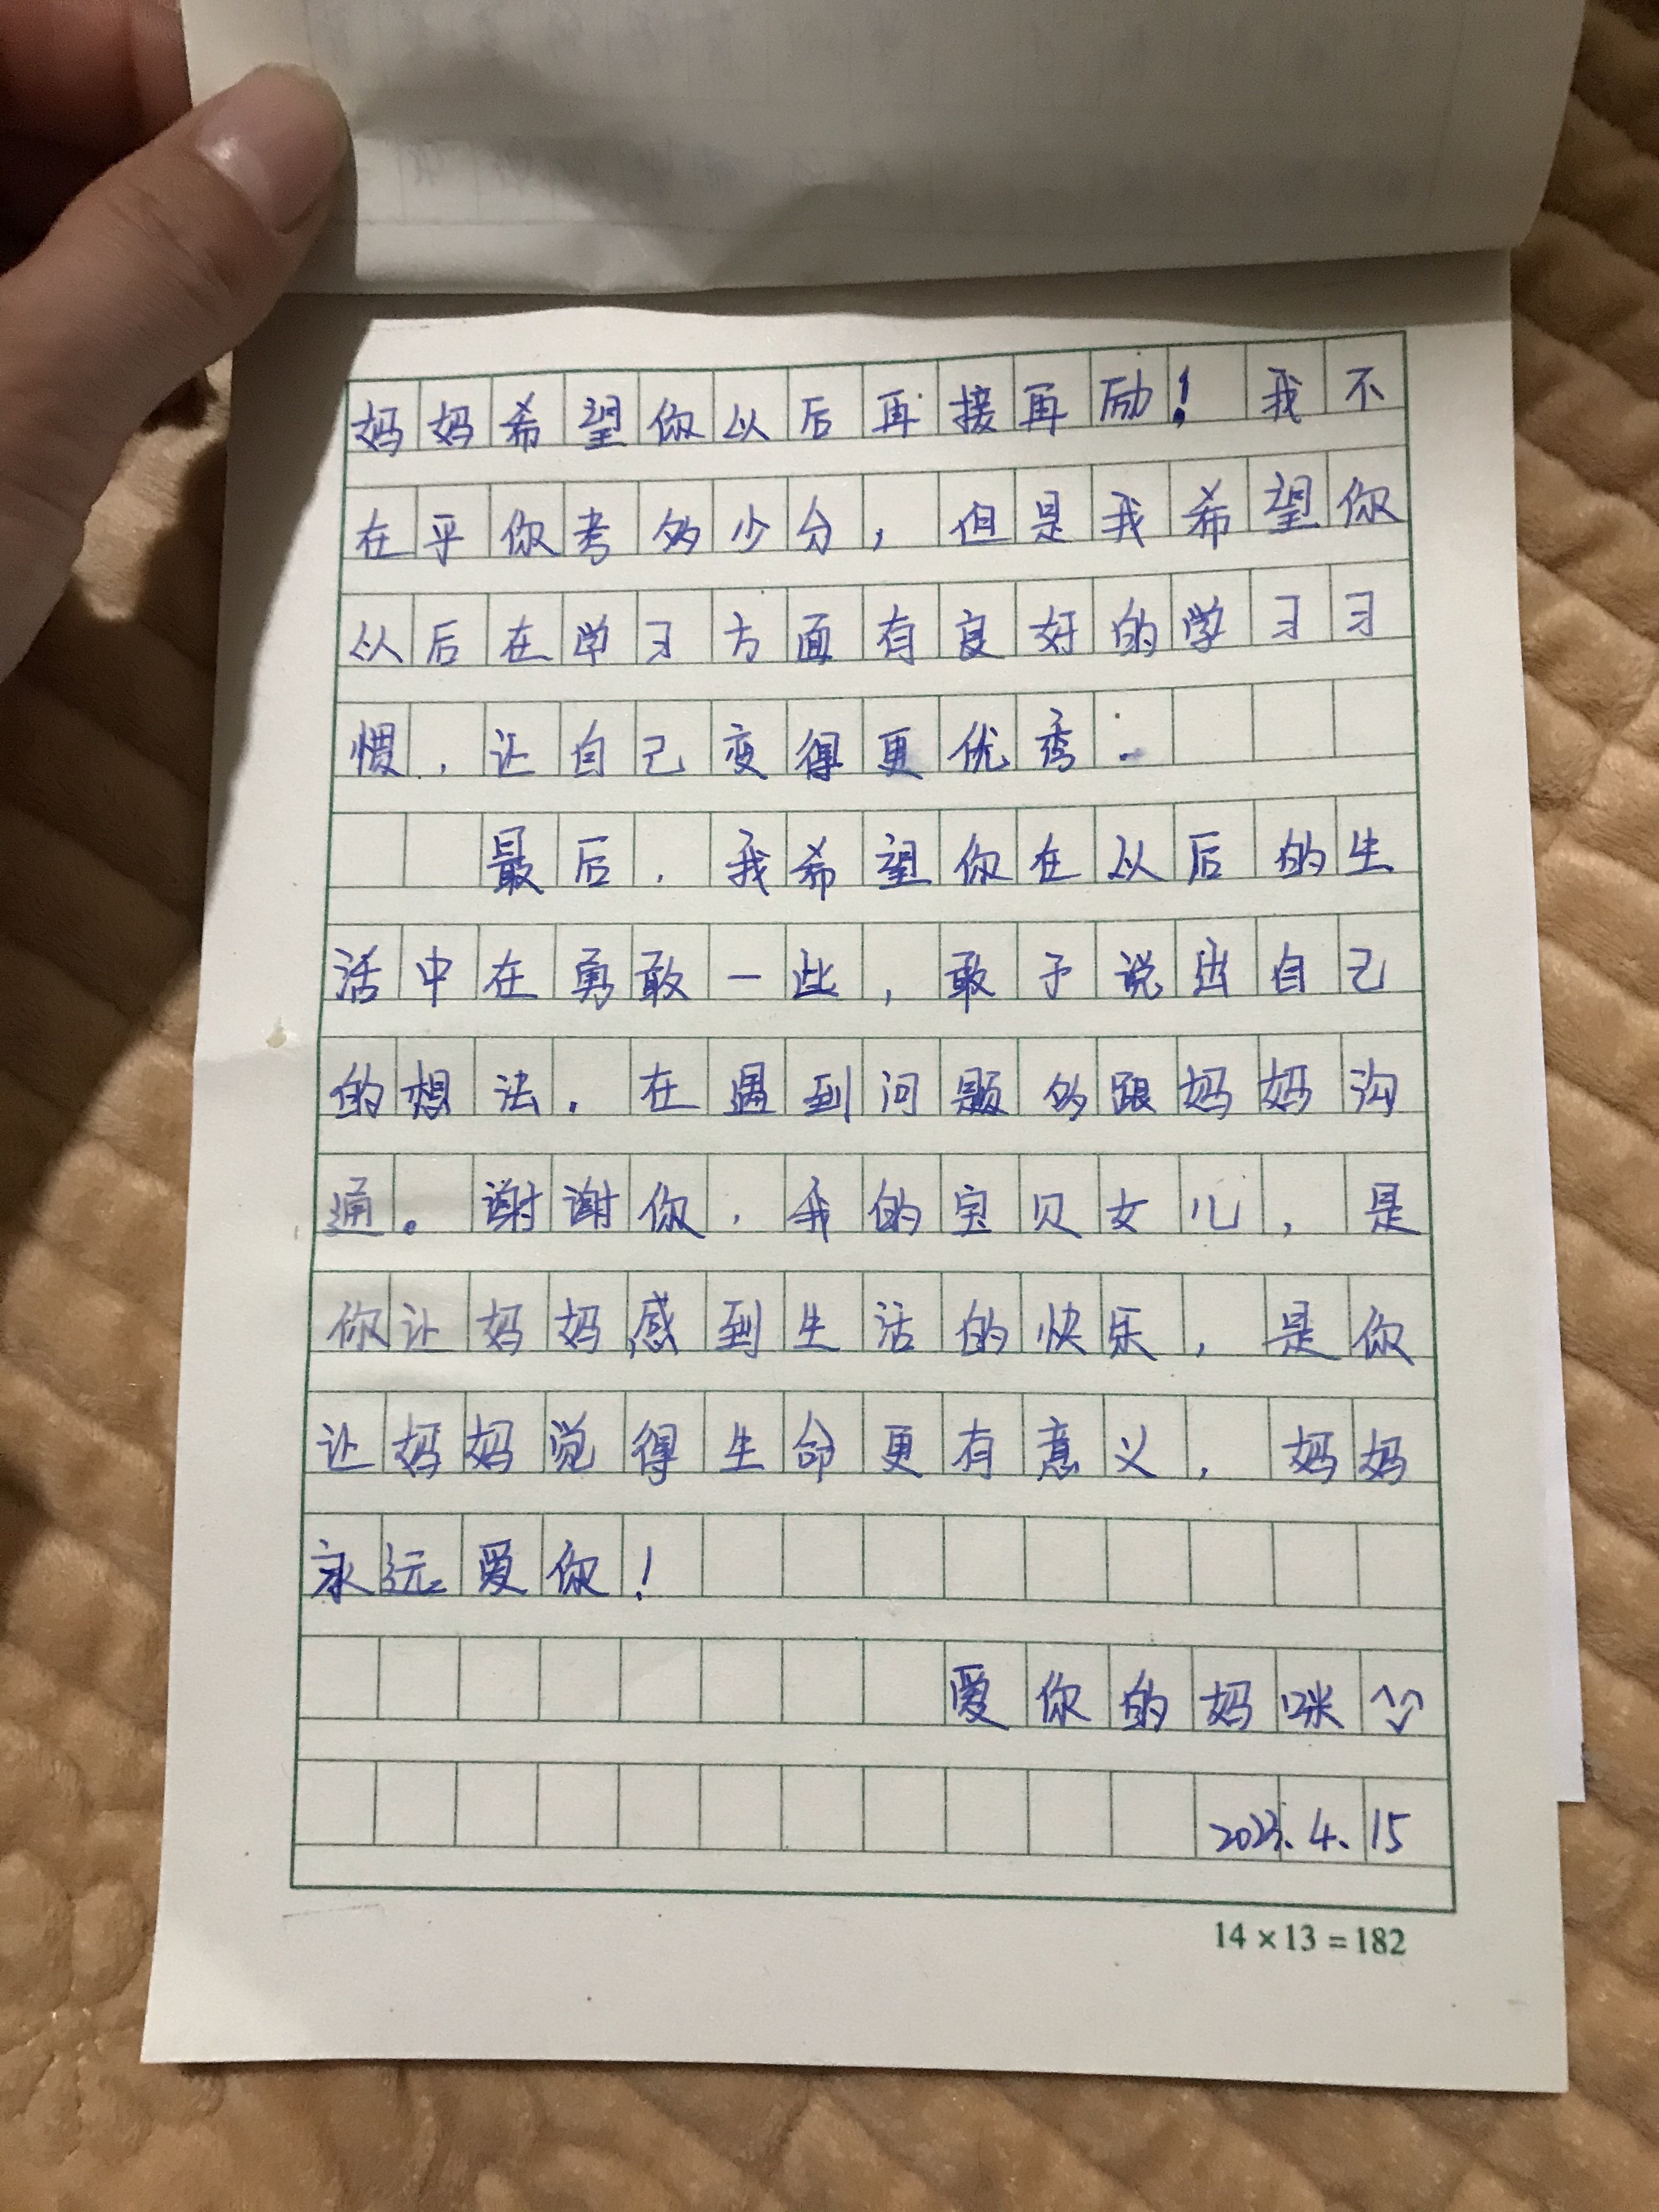 妈妈希望你以后再接再励！我不
在乎你考多少分，但是我希望你
以后在学习方面有良好的学习习
惯，让自己变得更优秀。
最后，我希望你在以后的生
活中在勇敢一些，敢于说出自己
的想法。在遇到问题多跟妈妈沟
通。谢谢你，我的宝贝女儿，是
你让妈妈感到生活的快乐，是你
让妈妈觉得生命更有意义，妈妈
永远爱你！
爱你的妈咪
2023.4.15
14×13=182